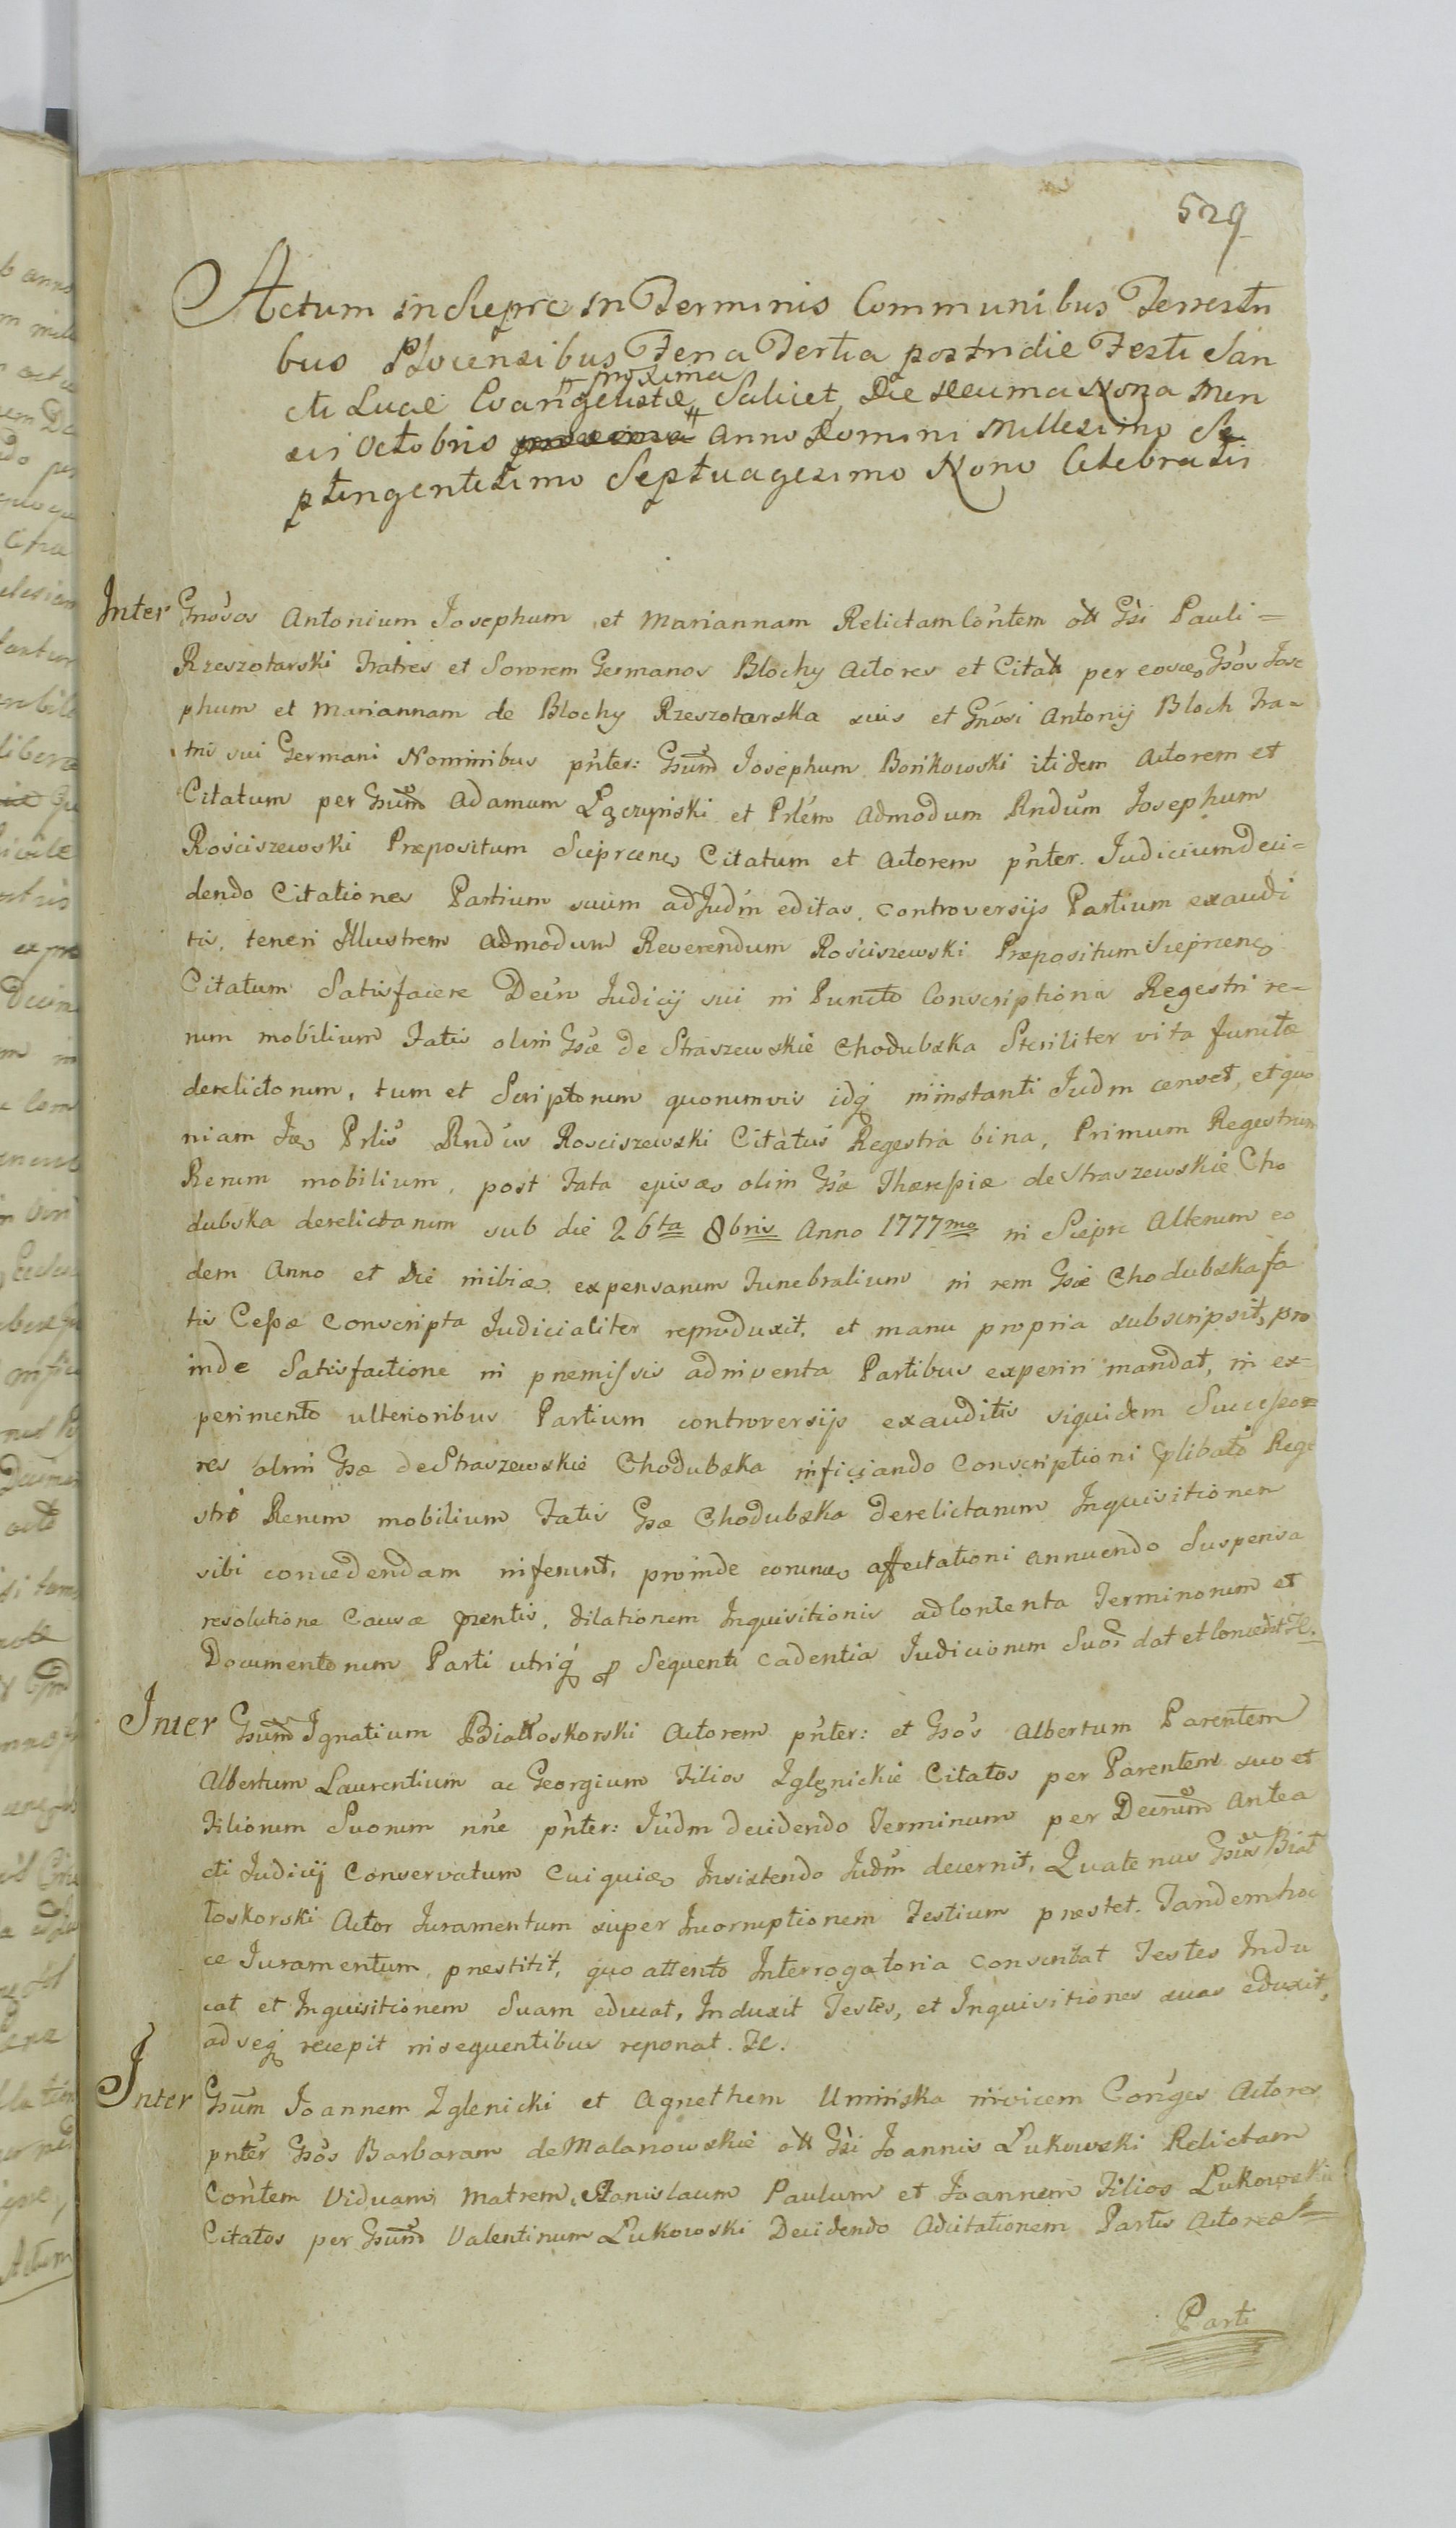 529
Actum in Sieprc in Terminis Communibus Terrestri
bus Plocensibus Feria Tertia postridie Festi San
proxima
cti Lucae Evangelistae Scilicet, Die Decima Nona Men
sis Octobris proxima Anno Domini Millesimo Se
ptingentesimo Septuagesimo Nono Celebratis
Inter Gnosos Antonium Josephum et Mariannam Relictam Contem olt Gsi Pauli=
Rzeszotarski Fratres et Sororem Germanos Blochy Actores et Citatt per eosdo Gsos Jose
phum et Mariannam de Blochy Rzeszotarska suis et Gnosi Antonij Bloch Fra=
tris sui Germani Nominibus pnter: Gsum Josephum Bońkowski itidem Actorem et
Citatum per Gsum Adamum Łączyński et Prlem Admodum Rndum Josephum
Rościszewski Praepositum Sieprcens Citatum et Actorem pnter. Judicium deci=
dendo Citationes Partium suum ad Judm editas, controversijs Partium exaudi
tis, teneri Illustrem Admodum Reverendum Rościszewski Praepositum Sieprcens
Citatum Satisfacere Decro Judicij sui in Puncto Conscriptionis Regestri re=
rum mobilium Fatis olim Gsae de Straszewskie Chodubska Steriliter vita functae
derelictorum, tum et Scriptorum quorumvis idq in instanti Judm censet, et quo
niam Prlis Rndus Rosciszewski Citatus Regestra bina, Primum Regestrum
Rerum mobilium, post Fata olim Gsae Theresiae de Straszewskie Cho
dubska derelictarum sub die 26ta 8bris Anno 1777mo in Sieprc Alterum eo
dem Anno et Die expensarum Funebralium in rem Gsae Chodubska fa
tis Cessae conscripta Judicialiter reproduxit, et manu propria subscripsit, pro
inde Satisfactione in praemissis adinventa Partibus experiri mandat, in ex=
perimento ulterioribus Partium controversijs exauditis siquidem Successo=
res olim Gsae de Straszewskie Chodubska inficiando Conscriptioni plibati Rege
stri Rerum mobilium Fatis Gsae Chodubska derelictarum Inquisitionem
sibi concedendam inferunt, proinde eorundo affectationi annuendo Suspensa
resolutione Causae prentis, Dilationem Inquisitionis ad Contenta Terminorum et
Documentorum Parti utriq p Sequenti cadentia Judiciorum Suor dat et Concedit Jtt.
Inter Gsum Ignatium Białłoskorski Actorem pnter: et Gsos Albertum Parentem
Albertum Laurentium ac Georgium Filios Zglenickie Citatos per Parentem suo et
Filiorum Suorum nne pnter: Judm decidendo Terminum per Decrum Antea
cti Judicij Conservatum Insistendo Judm decernit, Quatenus Gsus Biał
łoskorski Actor Juramentum super Incorruptionem Testium praestet. Tandem hoc
ce Juramentum, praestitit, quo attento Interrogatoria conscribat Testes Indu
cat et Inquisitionem Suam educat, Induxit Testes, et Inquisitiones suas eduxit,
ad seq recepit in sequentibus reponat. Jtt.
Inter Gsum Joannem Zglenicki et Agnethem Umińska invicem Conges Actores
pnter Gsos Barbaram de Malanowskie olt Gsi Joannis Łukowski Relictam
Contem Viduam, Matrem, Stanislaum Paulum et Joannem Filios Łukowskie
Citatos per Gsum Valentinum Łukowski Decidendo Adcitationem Partis Actoreae
Parti